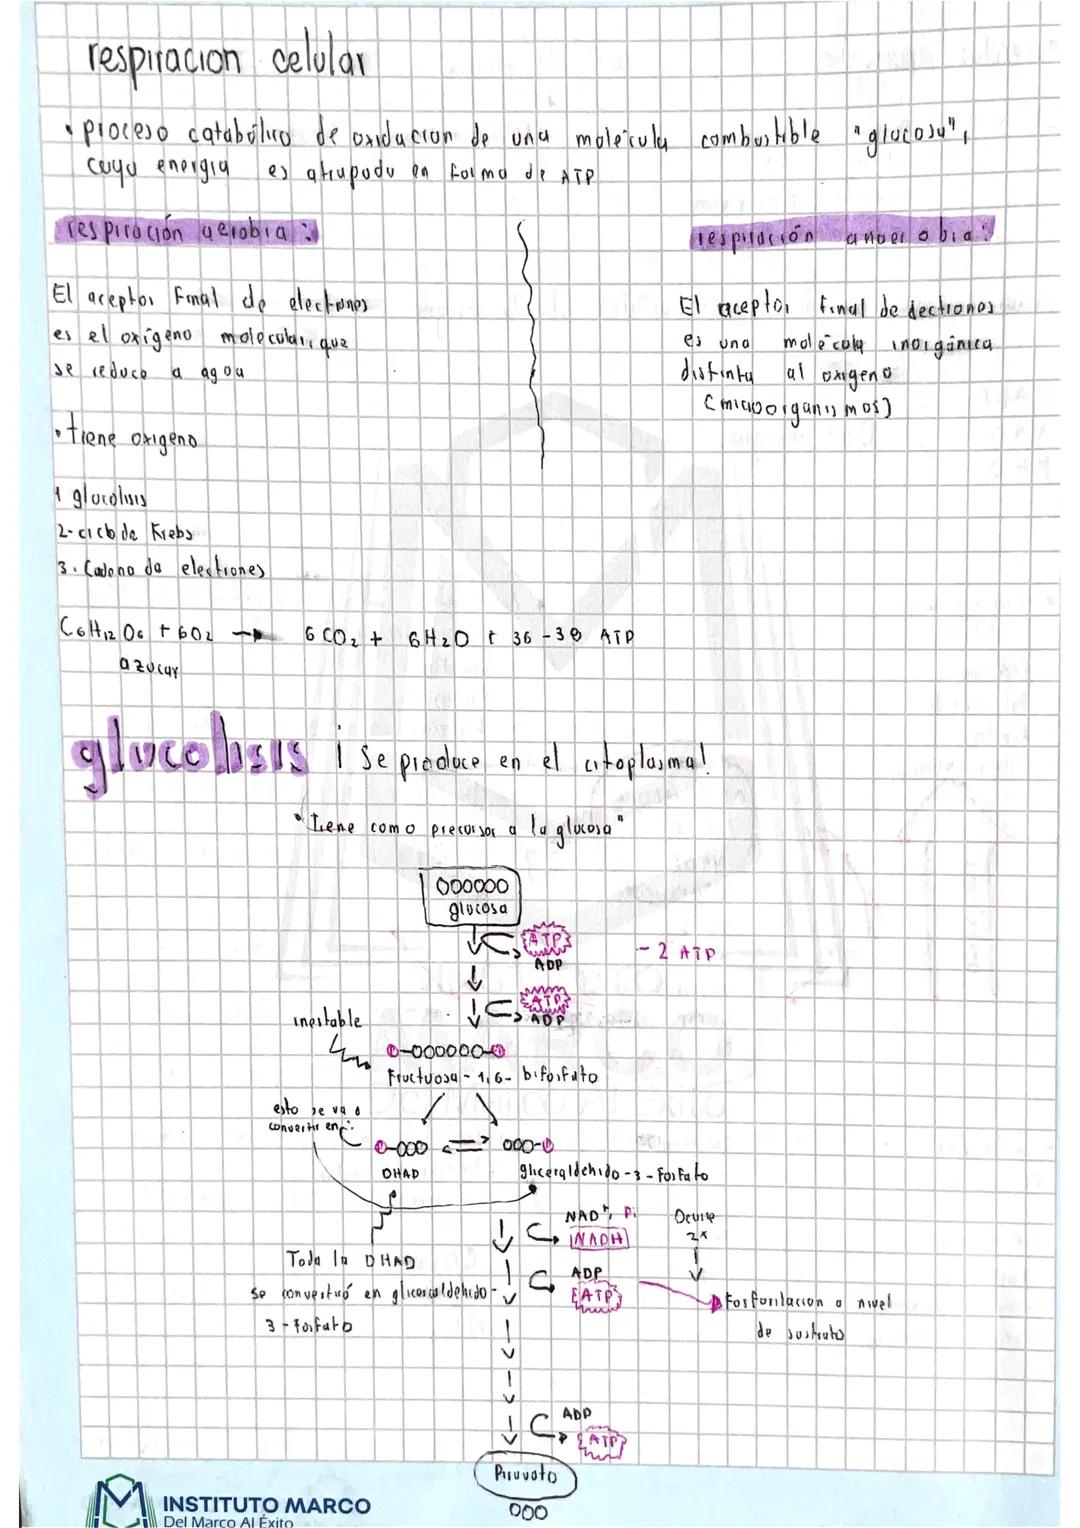 respiracion celular
• proceso catabólico de oxidacion de una molécula combustible "glucosa",
cuya energia es atrapada en forma de ATP
respiración aerobia :
respiración anaerobia:
El aceptor Final de electrones
es el oxígeno molecular, que
se reduce a agua
El aceptor final de electrones
es una molécula inorgánica
distinta al oxigeno
(microorganismos)
• tiene oxigeno
1 glucolisis
2- ciclo de Krebs
3. Cadena de electrones
C6H12O6 + 6O2 → 6CO2 + 6H2O + 36-38 ATP
azucar
glucolisis ¡ Se produce en el citoplasma!
• tiene como precursor a la glucosa"
000000
glucosa
ATP
ADP
- 2 ATP
ATP
ADP
inestable
Fructuosa - 1,6- bifosfato
esto se va a
convertir en:
000
000
DHAD
gliceraldehido - 3 - Fosfato
NAD+, Pi
NADH
Ocurre
2x
Toda la DHAD
se convertirá en gliceraldehido-
3 - Fosfato
ADP
ATP
Fosforilacion a nivel
de sustrato
ADP
ATP
Piruvato
000
INSTITUTO MARCO
Del Marco Al Éxito